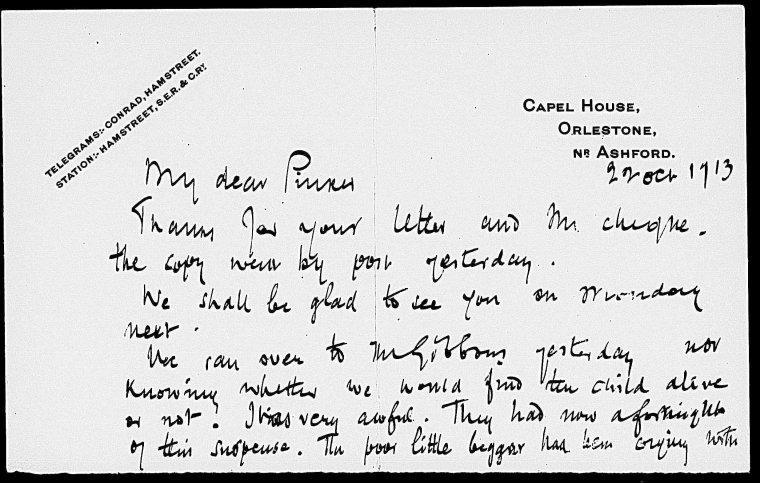 TELEGRAMS:- CONRAD, HAMSTREET.
STATION:- HAMSTREET, S.E.R. & C.RY.
CAPEL HOUSE,
ORLESTONE,
NR ASHFORD.
22 oct 1913
My dear Pinker
Thanks for your letter and the cheque.
the copy went by post yesterday.
We shall be glad to see you on Monday
next.
We ran over to the Gibbons yesterday not
knowing whether we would find the child alive
or not. It was very awful. They had now a fortnight
of this suspense. The poor little beggar had been crying with